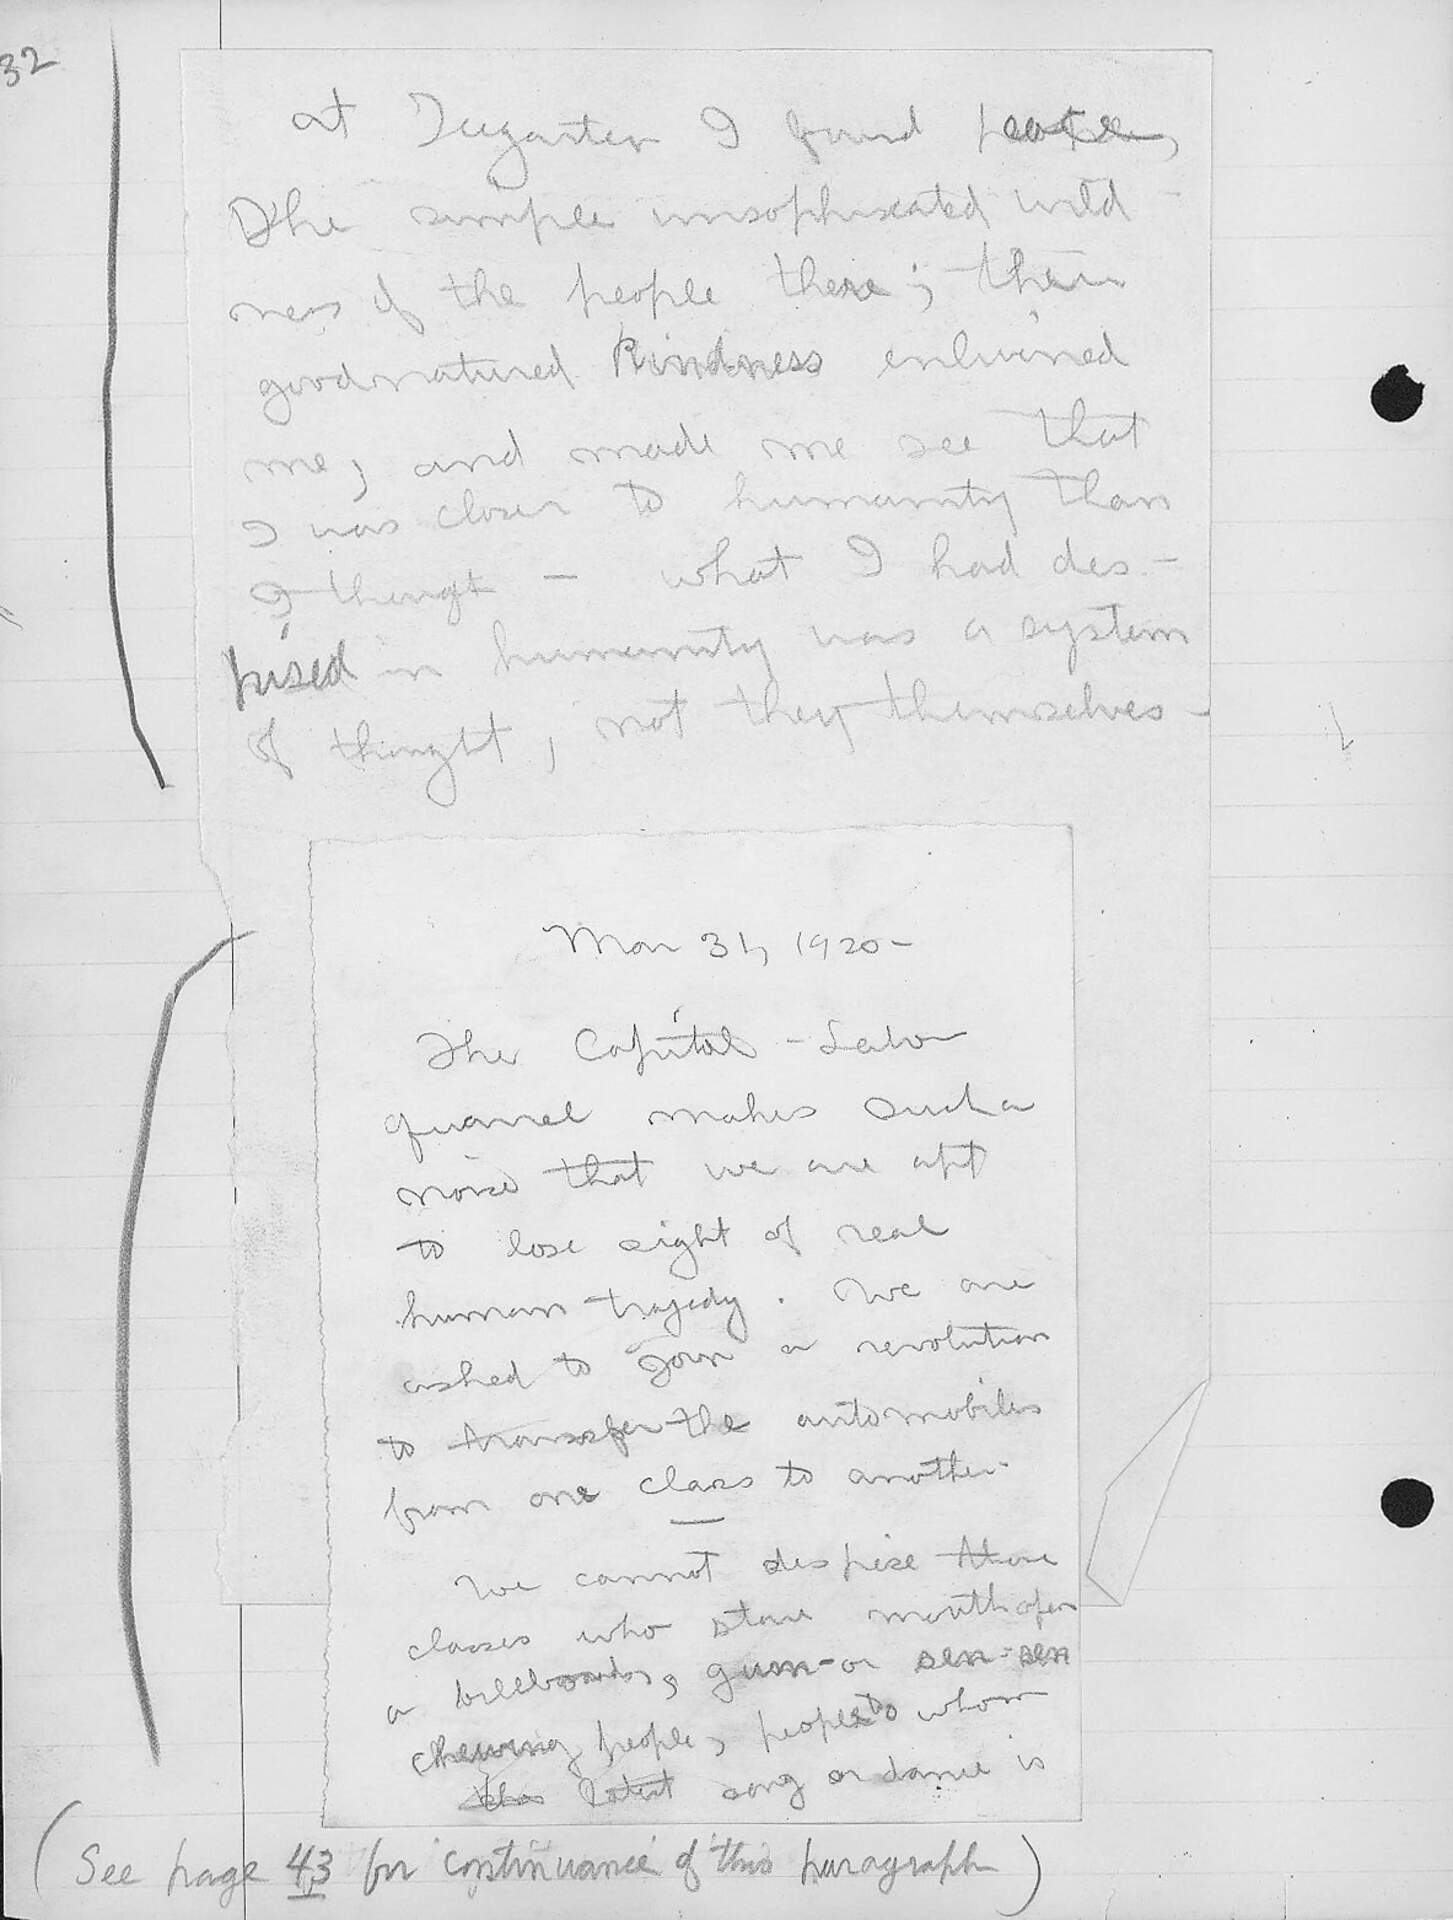 32
at Tiergarten I found peace,
The simple unsophisicated wild
ness of the people there; their
goodnatured kindness enlivened
me, and made me see that
I was closer to humanity than
I thought – what I had des-
pised in humanity was a system
of thought, not they themselves –
Mar 31, 1920 –
The Capital – Labor
quarrel makes such a
noise that we are apt
to lose sight of real
human tragedy. We are
asked to join a revolution
to transfer the automobiles
from one class to another.
We cannot despise those
classes who stare mouth open
a billboards, gum – or sen-sen
chewing people, people to whom
the latest song or dance is
(See page 43 for continuance of this paragraph)